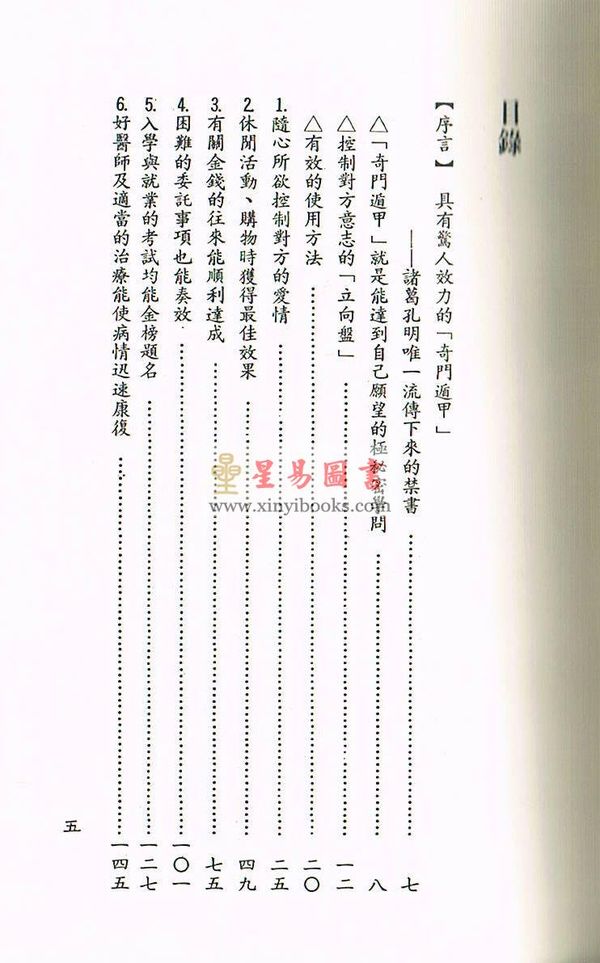 目錄
【序言】　具有驚人效力的「奇門遁甲」
——諸葛孔明唯一流傳下來的禁書……七
△「奇門遁甲」就是能達到自己願望的極秘密學問……八
△控制對方意志的「立向盤」……一二
△有效的使用方法……二〇
1.隨心所欲控制對方的愛情……二五
2.休閒活動、購物時獲得最佳效果……四九
3.有關金錢的往來能順利達成……七五
4.困難的委託事項也能奏效……一〇一
5.入學與就業的考試均能金榜題名……一二七
6.好醫師及適當的治療能使病情迅速康復……一四五
五
星易圖書
www.xinyibooks.com